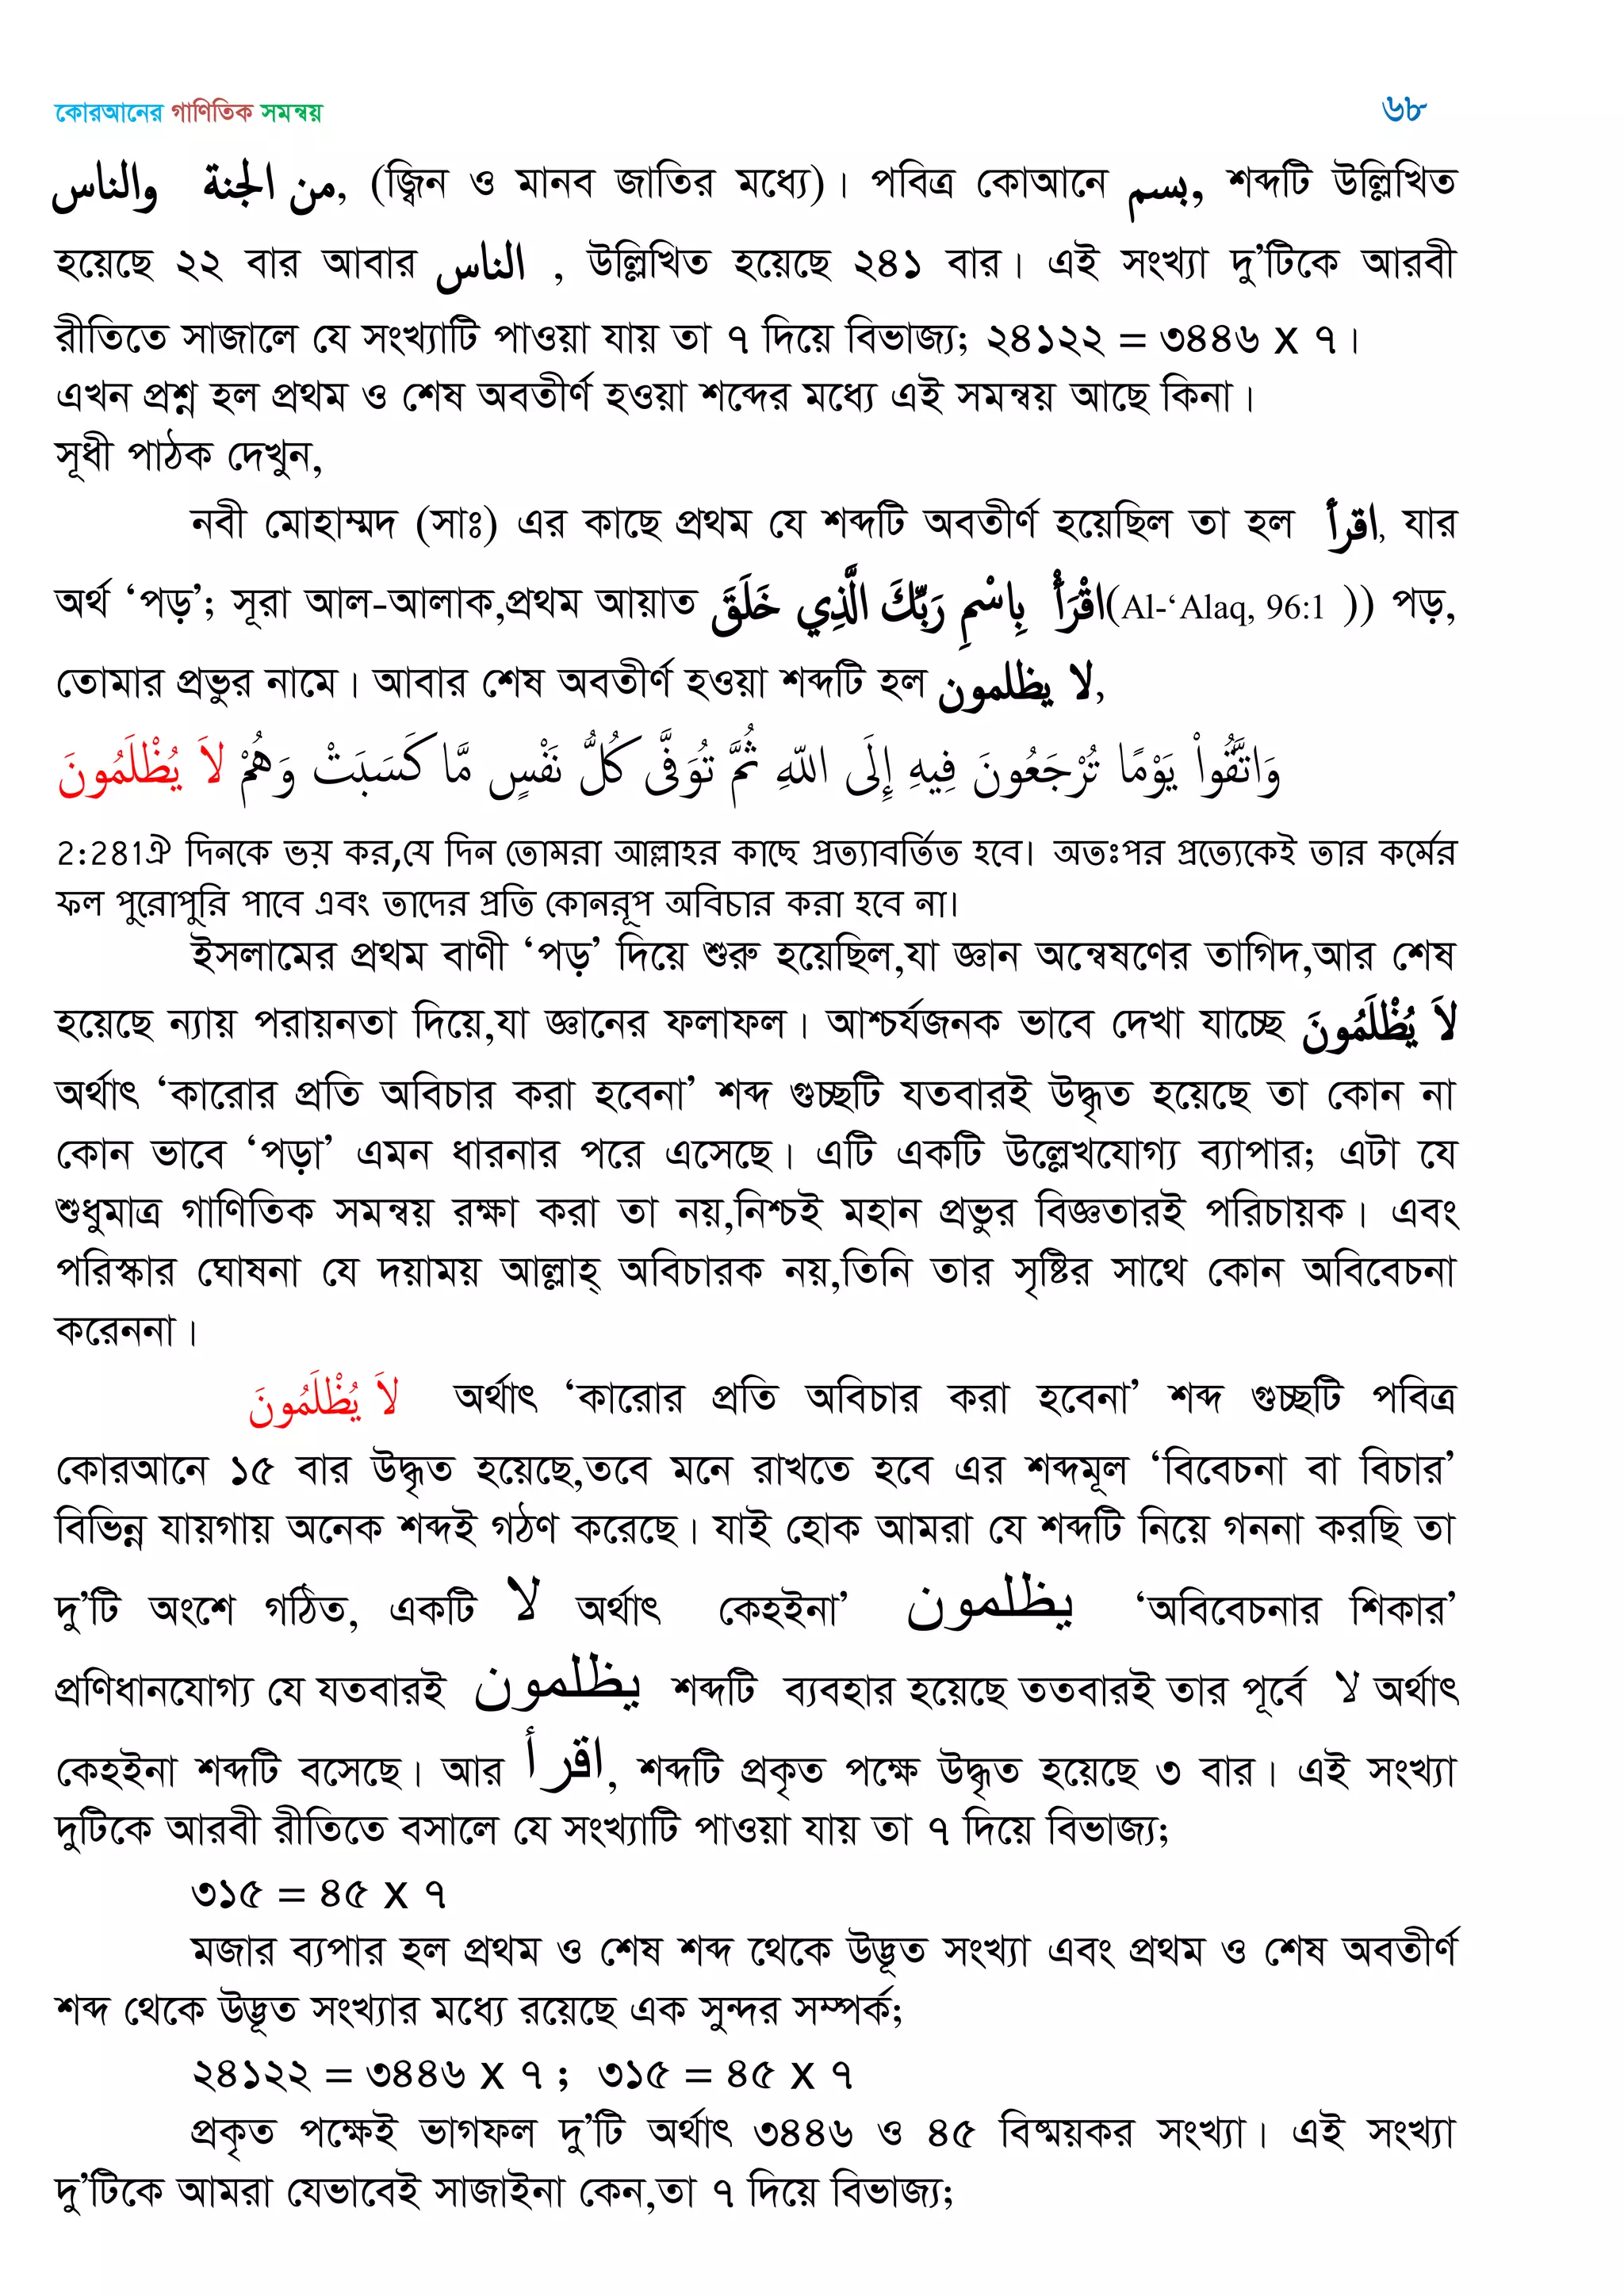 কোরআনের গাণিতিক সমন্বয় ৬৮
من الجنة والناس, (জ্বিন ও মানব জাতির মধ্যে)। পবিত্র কোআনে بسم, শব্দটি উল্লিখিত
হয়েছে ২২ বার আবার الناس , উল্লিখিত হয়েছে ২৪১ বার। এই সংখ্যা দু’টিকে আরবী
রীতিতে সাজালে যে সংখ্যাটি পাওয়া যায় তা ৭ দিয়ে বিভাজ্য; ২৪১২২ = ৩৪৪৬ x ৭।
এখন প্রশ্ন হল প্রথম ও শেষ অবতীর্ণ হওয়া শব্দের মধ্যে এই সমন্বয় আছে কিনা।
সূধী পাঠক দেখুন,
নবী মোহাম্মদ (সাঃ) এর কাছে প্রথম যে শব্দটি অবতীর্ণ হয়েছিল তা হল اقرأ, যার
অর্থ ‘পড়’; সূরা আল-আলাক,প্রথম আয়াত اقْرَأْ بِاسْمِ رَبِّكَ الَّذِي خَلَقَ(Al-‘Alaq, 96:1 )) পড়,
তোমার প্রভুর নামে। আবার শেষ অবতীর্ণ হওয়া শব্দটি হল لا يظلمون,
وَاتَّقُواْ يَوْمًا تُرْجَعُونَ فِيهِ إِلَى اللّهِ ثُمَّ تُوَفَّى كُلُّ نَفْسٍ مَّا كَسَبَتْ وَهُمْ لاَ يُظْلَمُونَ
2:281ঐ দিনকে ভয় কর,যে দিন তোমরা আল্লাহর কাছে প্রত্যাবর্তিত হবে। অতঃপর প্রত্যেকেই তার কর্মের
ফল পুরোপুরি পাবে এবং তাদের প্রতি কোনরূপ অবিচার করা হবে না।
ইসলামের প্রথম বাণী ‘পড়’ দিয়ে শুরু হয়েছিল,যা জ্ঞান অন্বেষণের তাগিদ,আর শেষ
হয়েছে ন্যায় পরায়নতা দিয়ে,যা জ্ঞানের ফলাফল। আশ্চর্যজনক ভাবে দেখা যাচ্ছে لاَ يُظْلَمُونَ
অর্থাৎ ‘কারোর প্রতি অবিচার করা হবেনা’ শব্দ গুচ্ছটি যতবারই উদ্ধৃত হয়েছে তা কোন না
কোন ভাবে ‘পড়া’ এমন ধারনার পরে এসেছে। এটি একটি উল্লেখযোগ্য ব্যাপার; এটা যে
শুধুমাত্র গাণিতিক সমন্বয় রক্ষা করা তা নয়,নিশ্চই মহান প্রভুর বিজ্ঞতারই পরিচায়ক। এবং
পরিস্কার ঘোষনা যে দয়াময় আল্লাহ্ অবিচারক নয়,তিনি তার সৃষ্টির সাথে কোন অবিবেচনা
করেননা।
لاَ يُظْلَمُونَ অর্থাৎ ‘কারোর প্রতি অবিচার করা হবেনা’ শব্দ গুচ্ছটি পবিত্র
কোরআনে ১৫ বার উদ্ধৃত হয়েছে,তবে মনে রাখতে হবে এর শব্দমূল ‘বিবেচনা বা বিচার’
বিভিন্ন যায়গায় অনেক শব্দই গঠণ করেছে। যাই হোক আমরা যে শব্দটি নিয়ে গননা করছি তা
দু’টি অংশে গঠিত, একটি لا অর্থাৎ কেহইনা’ يظلمون ‘অবিবেচনার শিকার’
প্রণিধানযোগ্য যে যতবারই يظلمون শব্দটি ব্যবহার হয়েছে ততবারই তার পূর্বে لا অর্থাৎ
কেহইনা শব্দটি বসেছে। আর اقرأ, শব্দটি প্রকৃত পক্ষে উদ্ধৃত হয়েছে ৩ বার। এই সংখ্যা
দুটিকে আরবী রীতিতে বসালে যে সংখ্যাটি পাওয়া যায় তা ৭ দিয়ে বিভাজ্য;
৩১৫ = ৪৫ x ৭
মজার ব্যপার হল প্রথম ও শেষ শব্দ থেকে উদ্ভূত সংখ্যা এবং প্রথম ও শেষ অবতীর্ণ
শব্দ থেকে উদ্ভূত সংখ্যার মধ্যে রয়েছে এক সুন্দর সম্পর্ক;
২৪১২২ = ৩৪৪৬ x ৭ ; ৩১৫ = ৪৫ x ৭
প্রকৃত পক্ষেই ভাগফল দু’টি অর্থাৎ ৩৪৪৬ ও ৪৫ বিষ্ময়কর সংখ্যা। এই সংখ্যা
দু’টিকে আমরা যেভাবেই সাজাইনা কেন,তা ৭ দিয়ে বিভাজ্য;